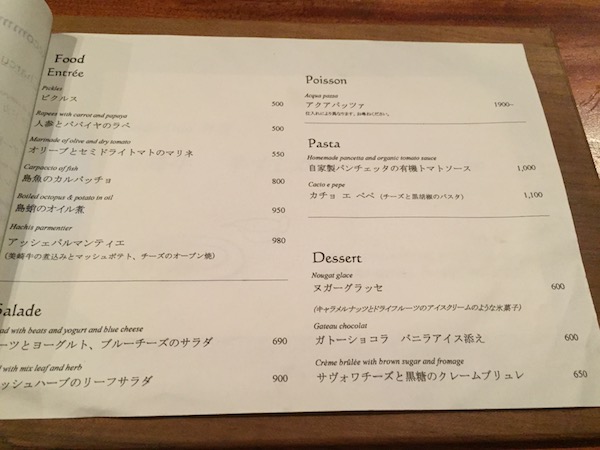 Food
Entrée
Pickles
ピクルス 500
Rapees with carrot and papaya
人参とパパイヤのラペ 500
Marinade of olive and dry tomato
オリーブとセミドライトマトのマリネ 550
Carpaccio of fish
島魚のカルパッチョ 800
Boiled octopus & potato in oil
島蛸のオイル煮 950
Hachis parmentier
アッシェパルマンティエ 980
(美崎牛の煮込みとマッシュポテト、チーズのオーブン焼)
Salade
ad with beats and yogurt and blue cheese
ーツとヨーグルト、ブルーチーズのサラダ 690
d with mix leaf and herb
ッシュハーブのリーフサラダ 900
Poisson
Acqua pazza
アクアパッツァ 1900~
仕入れにより異なります。お尋ねください。
Pasta
Homemade pancetta and organic tomato sauce
自家製パンチェッタの有機トマトソース 1,000
Cacio e pepe
カチョ エ ペペ (チーズと黒胡椒のパスタ) 1,100
Dessert
Nougat glace
ヌガーグラッセ 600
(キャラメルナッツとドライフルーツのアイスクリームのような氷菓子)
Gateau chocolat
ガトーショコラ バニラアイス添え 600
Crème brûlée with brown sugar and fromage
サヴォワチーズと黒糖のクレームブリュレ 650